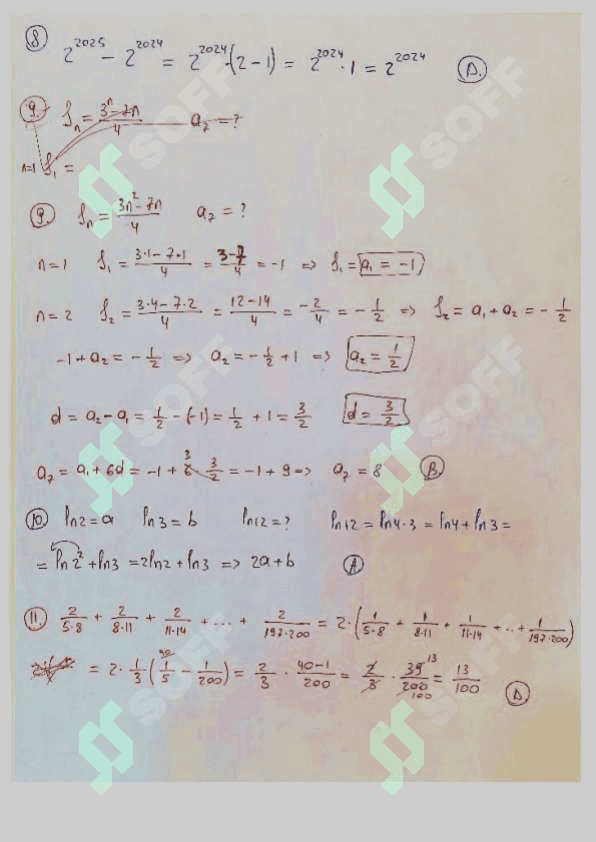 8 2^2025 - 2^2024 = 2^2024 · (2-1) = 2^2024 · 1 = 2^2024 D.
9. S_n = (3^n - 7n)/4 a_7 = ?
n=1 S_1 =
9. S_n = (3n^2 - 7n)/4 a_7 = ?
n=1 S_1 = (3·1-7·1)/4 = (3-7)/4 = -1 => S_1 = a_1 = -1
n=2 S_2 = (3·4-7·2)/4 = (12-14)/4 = -2/4 = -1/2 => S_2 = a_1 + a_2 = -1/2
-1 + a_2 = -1/2 => a_2 = -1/2 + 1 => a_2 = 1/2
d = a_2 - a_1 = 1/2 - (-1) = 1/2 + 1 = 3/2 d = 3/2
a_7 = a_1 + 6d = -1 + 6 3 · 3/2 = -1 + 9 => a_7 = 8 B
10. ln2 = a ln3 = b ln12 = ? ln12 = ln4·3 = ln4 + ln3 =
= ln2^2 + ln3 = 2ln2 + ln3 => 2a+b A
11. 2/(5·8) + 2/(8·11) + 2/(11·14) + ... + 2/(197·200) = 2·(1/(5·8) + 1/(8·11) + 1/(11·14) + ... + 1/(197·200))
= 2 · 1/3 (40 1/5 - 1/200) = 2/3 · (40-1)/200 = 2/3 · 39 13/200 100 = 13/100 D.
SOFF
SOFF
SOFF
SOFF
SOFF
SOFF